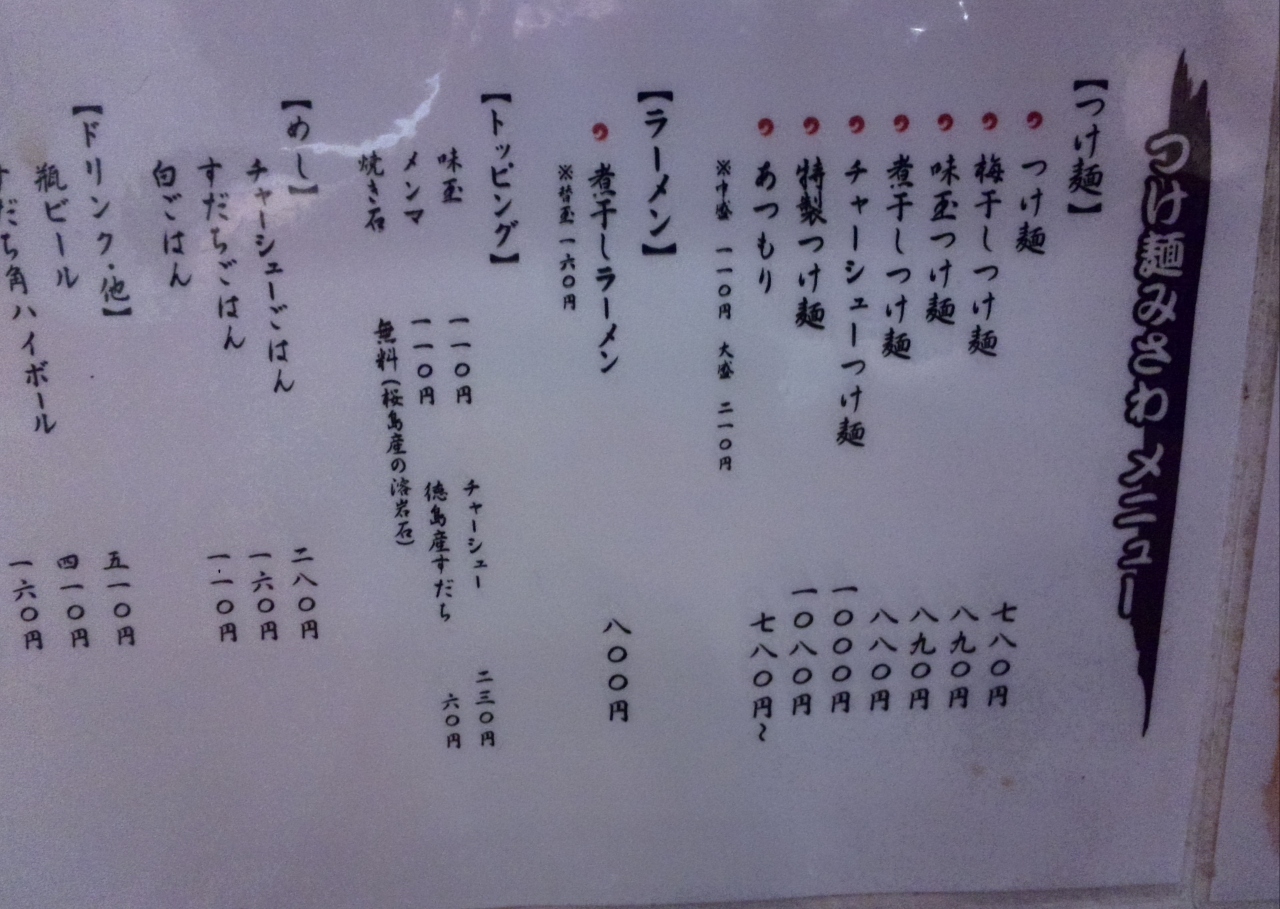 つけ麺みさわ メニュー
【つけ麺】
つけ麺 七八〇円
梅干しつけ麺 八九〇円
味玉つけ麺 八九〇円
煮干しつけ麺 八八〇円
チャーシューつけ麺 一〇〇〇円
特製つけ麺 一〇八〇円
あつもり 七八〇円〜
※中盛 一一〇円 大盛 二一〇円
【ラーメン】
煮干しラーメン 八〇〇円
※替玉一六〇円
【トッピング】
味玉 一一〇円 チャーシュー 二三〇円
メンマ 一一〇円 徳島産すだち 六〇円
焼き石 無料(桜島産の溶岩石)
【めし】
チャーシューごはん 二八〇円
すだちごはん 一六〇円
白ごはん 一一〇円
【ドリンク・他】
瓶ビール 五一〇円
すだち角ハイボール 四一〇円
一六〇円